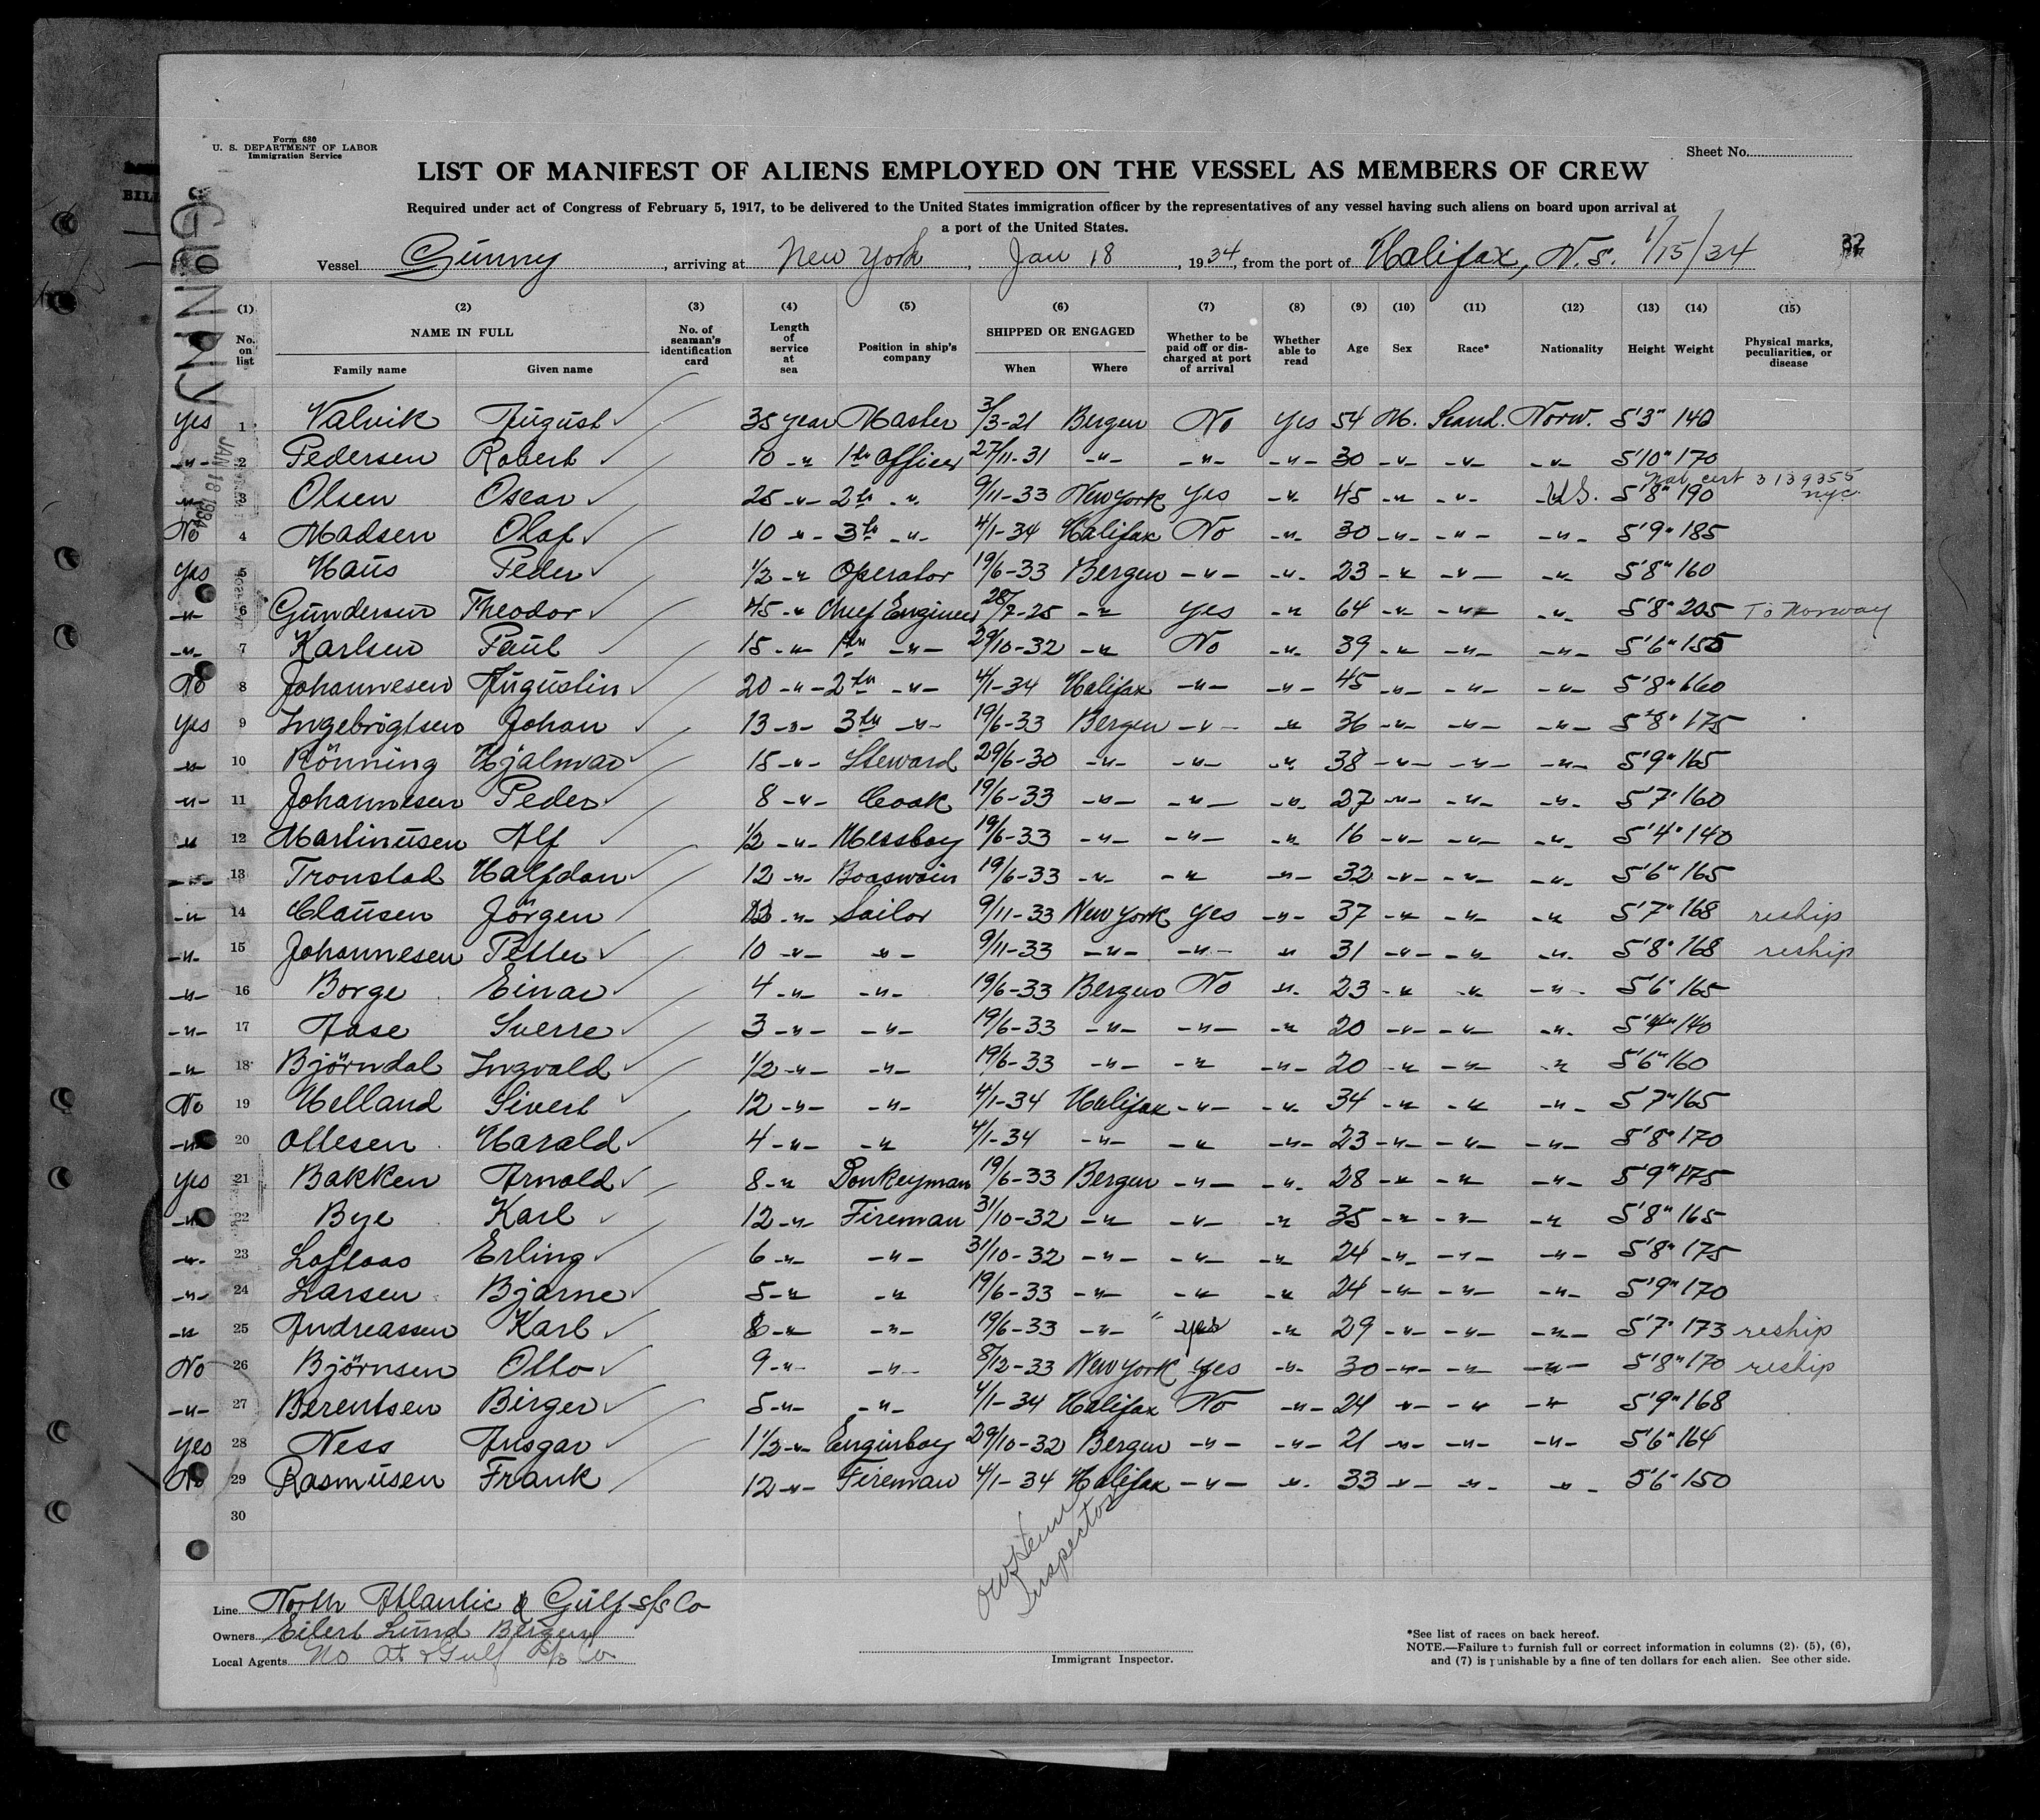 Form 680
U. S. DEPARTMENT OF LABOR
Immigration Service
Sheet No.
LIST OF MANIFEST OF ALIENS EMPLOYED ON THE VESSEL AS MEMBERS OF CREW
Required under act of Congress of February 5, 1917, to be delivered to the United States immigration officer by the representatives of any vessel having such aliens on board upon arrival at
a port of the United States.
Vessel Gunny, arriving at New York, Jan 18, 1934, from the port of Halifax, N.S. 1/15/34
GUNNY
JAN 18 1934
(1) (2) (3) (4) (5) (6) (7) (8) (9) (10) (11) (12) (13) (14) (15)
No. on list NAME IN FULL Family name Given name No. of seaman's identification card Length of service at sea Position in ship's company SHIPPED OR ENGAGED When Where Whether to be paid off or discharged at port of arrival Whether able to read Age Sex Race* Nationality Height Weight Physical marks, peculiarities, or disease
Yes 1 Valvik August 35 year Master 3/3-21 Bergen No Yes 54 M. Scand. Norw. 5'3" 140
-"- 2 Pedersen Robert 10 -"- 1ste Officer 27/11-31 -"- -"- -"- 30 -"- -"- -"- 5'10" 170
-"- 3 Olsen Oscar 25 -"- 2te -"- 9/11-33 New York Yes -"- 45 -"- -"- U.S. 5'8" 190 Nat. cert 3139355 nyc.
No 4 Madsen Olaf 10 -"- 3te -"- 4/1-34 Halifax No -"- 30 -"- -"- -"- 5'9" 185
Yes 5 Haus Peder 1/2 -"- Operator 19/6-33 Bergen -"- -"- 23 -"- -"- -"- 5'8" 160
-"- 6 Gundersen Theodor 45 -"- Chief Engineer 28/7-25 -"- Yes -"- 64 -"- -"- -"- 5'8" 205 To Norway
-"- 7 Karlsen Paul 15 -"- 1ste -"- 29/10-32 -"- No -"- 39 -"- -"- -"- 5'6" 155
No 8 Johannesen Augustin 20 -"- 2te -"- 4/1-34 Halifax -"- -"- 45 -"- -"- -"- 5'8" 160
Yes 9 Ingebrigtsen Johan 13 -"- 3te -"- 19/6-33 Bergen -"- -"- 36 -"- -"- -"- 5'8" 175
-"- 10 Rönning Hjalmar 15 -"- Steward 29/6-30 -"- -"- -"- 38 -"- -"- -"- 5'9" 165
-"- 11 Johannesen Peder 8 -"- Cook 19/6-33 -"- -"- -"- 27 -"- -"- -"- 5'7" 160
-"- 12 Martinusen Alf 1/2 -"- Messboy 19/6-33 -"- -"- -"- 16 -"- -"- -"- 5'4" 140
-"- 13 Tronstad Halfdan 12 -"- Boaswain 19/6-33 -"- -"- -"- 32 -"- -"- -"- 5'6" 165
-"- 14 Clausen Jörgen -"- Sailor 9/11-33 New York Yes -"- 37 -"- -"- -"- 5'7" 168 reship
-"- 15 Johannesen Petter 10 -"- -"- 9/11-33 -"- -"- -"- 31 -"- -"- -"- 5'8" 168 reship
-"- 16 Borge Einar 4 -"- -"- 19/6-33 Bergen No -"- 23 -"- -"- -"- 5'6" 165
-"- 17 Aase Sverre 3 -"- -"- 19/6-33 -"- -"- -"- 20 -"- -"- -"- 5'4" 140
-"- 18 Björndal Ingvald 1/2 -"- -"- 19/6-33 -"- -"- -"- 20 -"- -"- -"- 5'6" 160
No 19 Helland Sivert 12 -"- -"- 4/1-34 Halifax -"- -"- 34 -"- -"- -"- 5'7" 165
-"- 20 Ottesen Harald 4 -"- -"- 4/1-34 -"- -"- -"- 23 -"- -"- -"- 5'8" 170
Yes 21 Bakken Arnold 8 -"- Donkeyman 19/6-33 Bergen -"- -"- 28 -"- -"- -"- 5'9" 175
-"- 22 Bye Karl 12 -"- Fireman 31/10-32 -"- -"- -"- 35 -"- -"- -"- 5'8" 165
-"- 23 Loftaas Erling 6 -"- -"- 31/10-32 -"- -"- -"- 24 -"- -"- -"- 5'8" 175
-"- 24 Larsen Bjarne 5 -"- -"- 19/6-33 -"- -"- -"- 24 -"- -"- -"- 5'9" 170
-"- 25 Andreassen Karl 8 -"- -"- 19/6-33 -"- " yes -"- 29 -"- -"- -"- 5'7" 173 reship
No 26 Björnsen Otto 9 -"- -"- 8/12-33 New York Yes -"- 30 -"- -"- -"- 5'8" 170 reship
-"- 27 Berentsen Birger 5 -"- -"- 4/1-34 Halifax No -"- 24 -"- -"- -"- 5'9" 168
Yes 28 Ness Ansgar 1 1/2 -"- Enginboy 29/10-32 Bergen -"- -"- 21 -"- -"- -"- 5'6" 164
No 29 Rasmusen Frank 12 -"- Fireman 4/1-34 Halifax -"- -"- 33 -"- -"- -"- 5'6" 150
30
Inspector
Line North Atlantic & Gulf S/S Co
Owners Eilert Lund Bergen
Local Agents No At & Gulf S/S Co
Immigrant Inspector.
*See list of races on back hereof.
NOTE.—Failure to furnish full or correct information in columns (2), (5), (6),
and (7) is punishable by a fine of ten dollars for each alien. See other side.